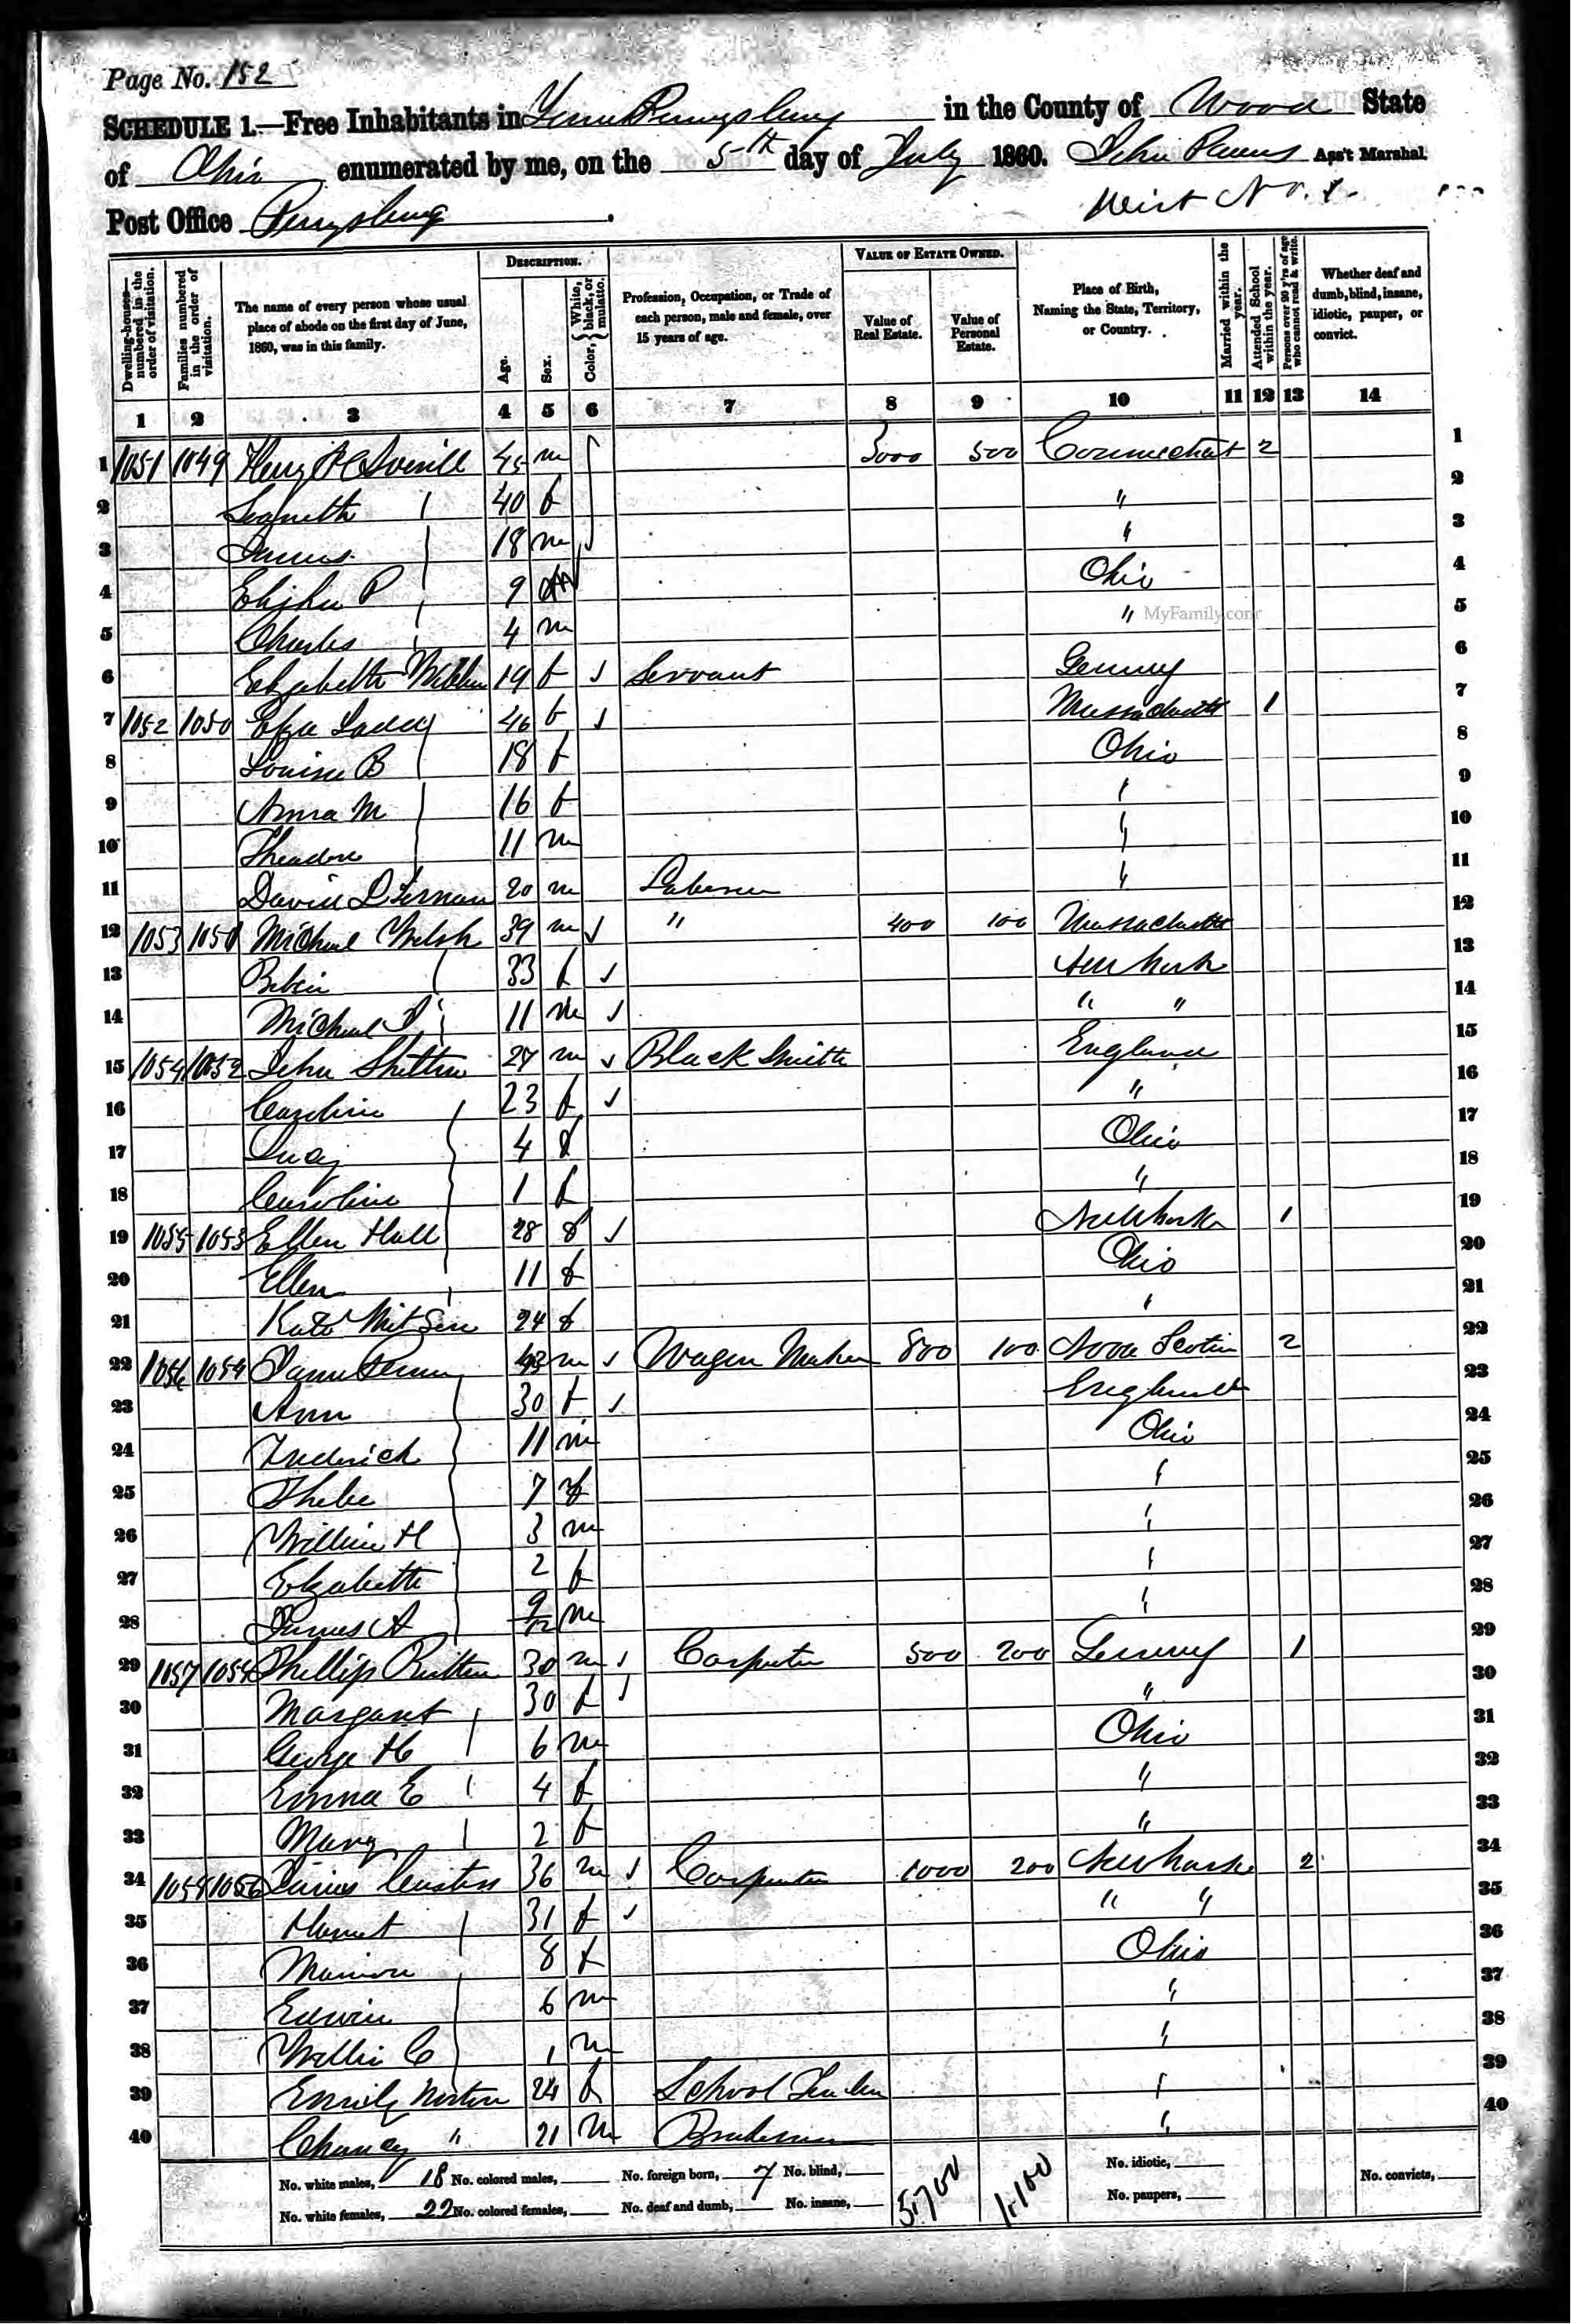 Page No. 152
SCHEDULE 1.—Free Inhabitants in Perrysburg in the County of Wood State
of Ohio enumerated by me, on the 5th day of July 1860. John Ass't Marshal.
Post Office Perrysburg.
DESCRIPTION. VALUE OF ESTATE OWNED.
Dwelling-houses—numbered in the order of visitation. Families numbered in the order of visitation. The name of every person whose usual place of abode on the first day of June, 1860, was in this family. Age. Sex. Color, White, black, or mulatto. Profession, Occupation, or Trade of each person, male and female, over 15 years of age. Value of Real Estate. Value of Personal Estate. Place of Birth, Naming the State, Territory, or Country. Married within the year. Attended School within the year. Persons over 20 y'rs of age who cannot read & write. Whether deaf and dumb, blind, insane, idiotic, pauper, or convict.
1 2 3 4 5 6 7 8 9 10 11 12 13 14
1 1051 1049 45 m 3000 500 Connecticut 2 1
2 40 f " 2
3 James 18 m " 3
4 Elizhu P 9 m Ohio 4
5 Charles 4 m " 5
MyFamily.com
6 Elizabeth 19 f Servant Germy 6
7 1052 1050 46 f Massachusetts 1 7
8 Louisa B 18 f Ohio 8
9 Anna M 16 f " 9
10 Theadore 11 m " 10
11 David 20 m Laborer " 11
12 1053 1051 Michael Welsh 39 m " 400 100 Massachusetts 12
13 33 f New York 13
14 Michael 11 m " " 14
15 1054 1052 John 27 m Black Smith England 15
16 Caroline 23 f " 16
17 4 f Ohio 17
18 Caroline 1 f " 18
19 1055 1053 Ellen Hall 28 f New York 1 19
20 Ellen 11 f Ohio 20
21 Kate 24 f " 21
22 1056 1054 43 m Wagon Maker 800 100 Nova Scotia 2 22
23 Ann 30 f England 23
24 Frederick 11 m Ohio 24
25 Phebe 7 f " 25
26 William H 3 m " 26
27 Elizabeth 2 f " 27
28 James A 9/12 m " 28
29 1057 1055 Phillip 30 m Carpenter 500 200 Germy 1 29
30 Margaret 30 f " 30
31 George H 6 m Ohio 31
32 Emma E 4 f " 32
33 Mary 2 f " 33
34 1058 1056 36 m Carpenter 1000 200 New York 2 34
35 Harriet 31 f " " 35
36 Marion 8 f Ohio 36
37 Edwin 6 m " 37
38 Willie C 1 m " 38
39 Emily Norton 24 f School Teacher " 39
40 Chancy " 21 m Brakeman " 40
No. white males, 18 No. colored males, No. foreign born, 7 No. blind, 5,700 1,100 No. idiotic, No. convicts,
No. white females, 22 No. colored females, No. deaf and dumb, No. insane, No. paupers,